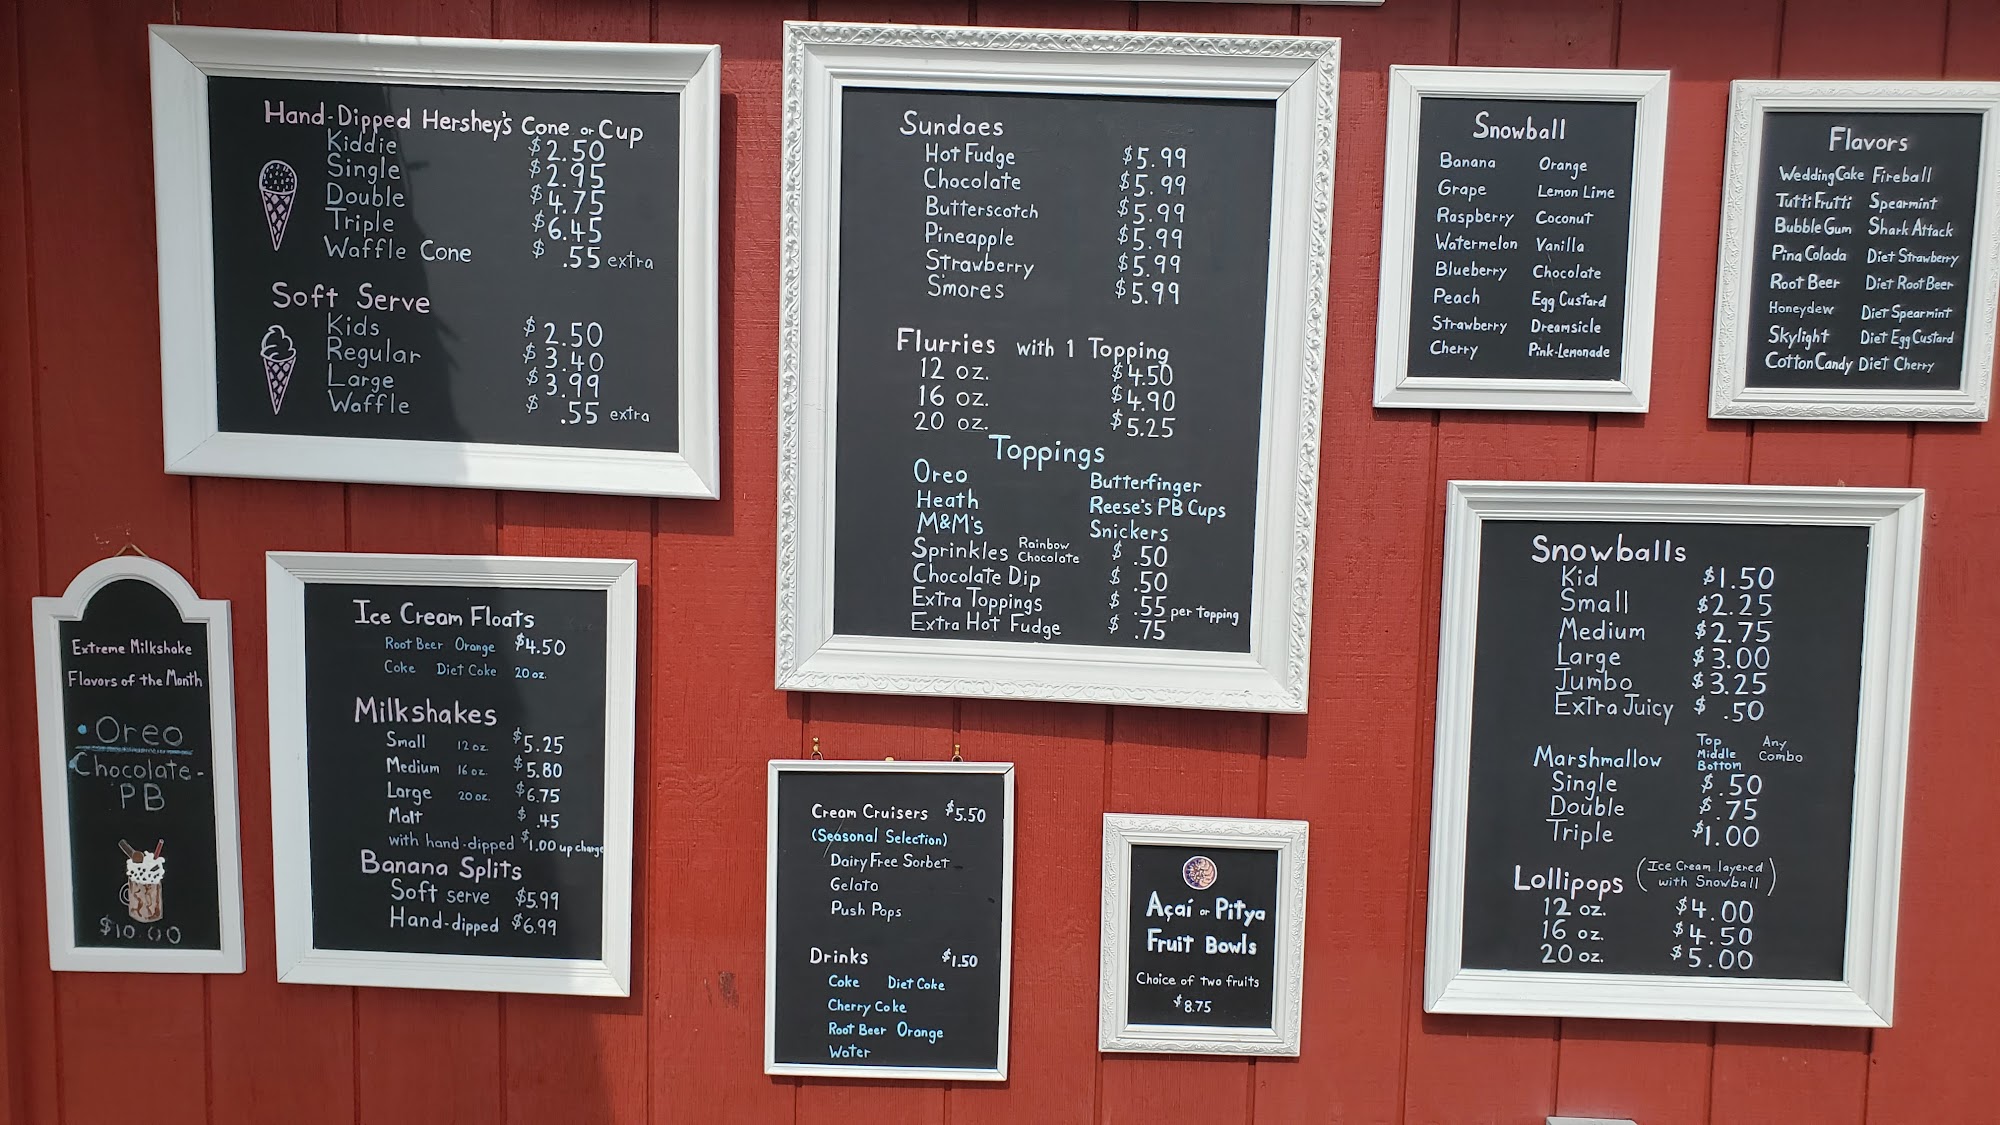 Hand-Dipped Hershey's Cone or Cup
Kiddie $2.50
Single $2.95
Double $4.75
Triple $6.45
Waffle Cone $ .55 extra
Soft Serve
Kids $2.50
Regular $3.40
Large $3.99
Waffle $ .55 extra
Sundaes
Hot Fudge $5.99
Chocolate $5.99
Butterscotch $5.99
Pineapple $5.99
Strawberry $5.99
S'mores $5.99
Flurries with 1 Topping
12 oz. $4.50
16 oz. $4.90
20 oz. $5.25
Toppings
Oreo Butterfinger
Heath Reese's PB Cups
M&M's Snickers
Sprinkles Rainbow Chocolate $ .50
Chocolate Dip $ .50
Extra Toppings $ .55 per topping
Extra Hot Fudge $ .75
Snowball
Banana Orange
Grape Lemon Lime
Raspberry Coconut
Watermelon Vanilla
Blueberry Chocolate
Peach Egg Custard
Strawberry Dreamsicle
Cherry Pink-Lemonade
Flavors
Wedding Cake Fireball
Tutti Frutti Spearmint
Bubble Gum Shark Attack
Pina Colada Diet Strawberry
Root Beer Diet Root Beer
Honeydew Diet Spearmint
Skylight Diet Egg Custard
Cotton Candy Diet Cherry
Extreme Milkshake
Flavors of the Month
• Oreo
Chocolate-
PB
$10.00
Ice Cream Floats
Root Beer Orange $4.50
Coke Diet Coke 20 oz.
Milkshakes
Small 12 oz $5.25
Medium 16 oz. $5.80
Large 20 oz. $6.75
Malt $ .45
with hand-dipped $1.00 up charge
Banana Splits
Soft serve $5.99
Hand-dipped $6.99
Cream Cruisers $5.50
(Seasonal Selection)
Dairy Free Sorbet
Gelato
Push Pops
Drinks $1.50
Coke Diet Coke
Cherry Coke
Root Beer Orange
Water
Açaí or Pitya
Fruit Bowls
Choice of two fruits
$8.75
Snowballs
Kid $1.50
Small $2.25
Medium $2.75
Large $3.00
Jumbo $3.25
Extra Juicy $ .50
Marshmallow Top Middle Bottom Any Combo
Single $ .50
Double $ .75
Triple $1.00
Lollipops (Ice Cream layered with Snowball)
12 oz. $4.00
16 oz. $4.50
20 oz. $5.00